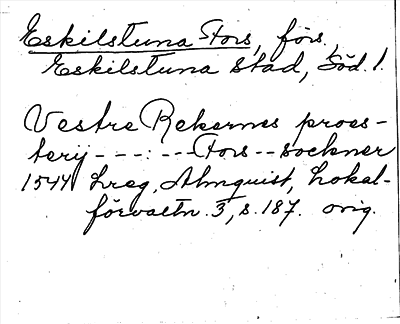 Eskilstuna-Fors, förs,
Eskilstuna stad, Söd. l.
Vestre Rekernes proes-
terij - - - : - - - Fors - - sockner
1544 Lreg, Almquist, Lokal-
förvaltn. 3, s. 187. orig.